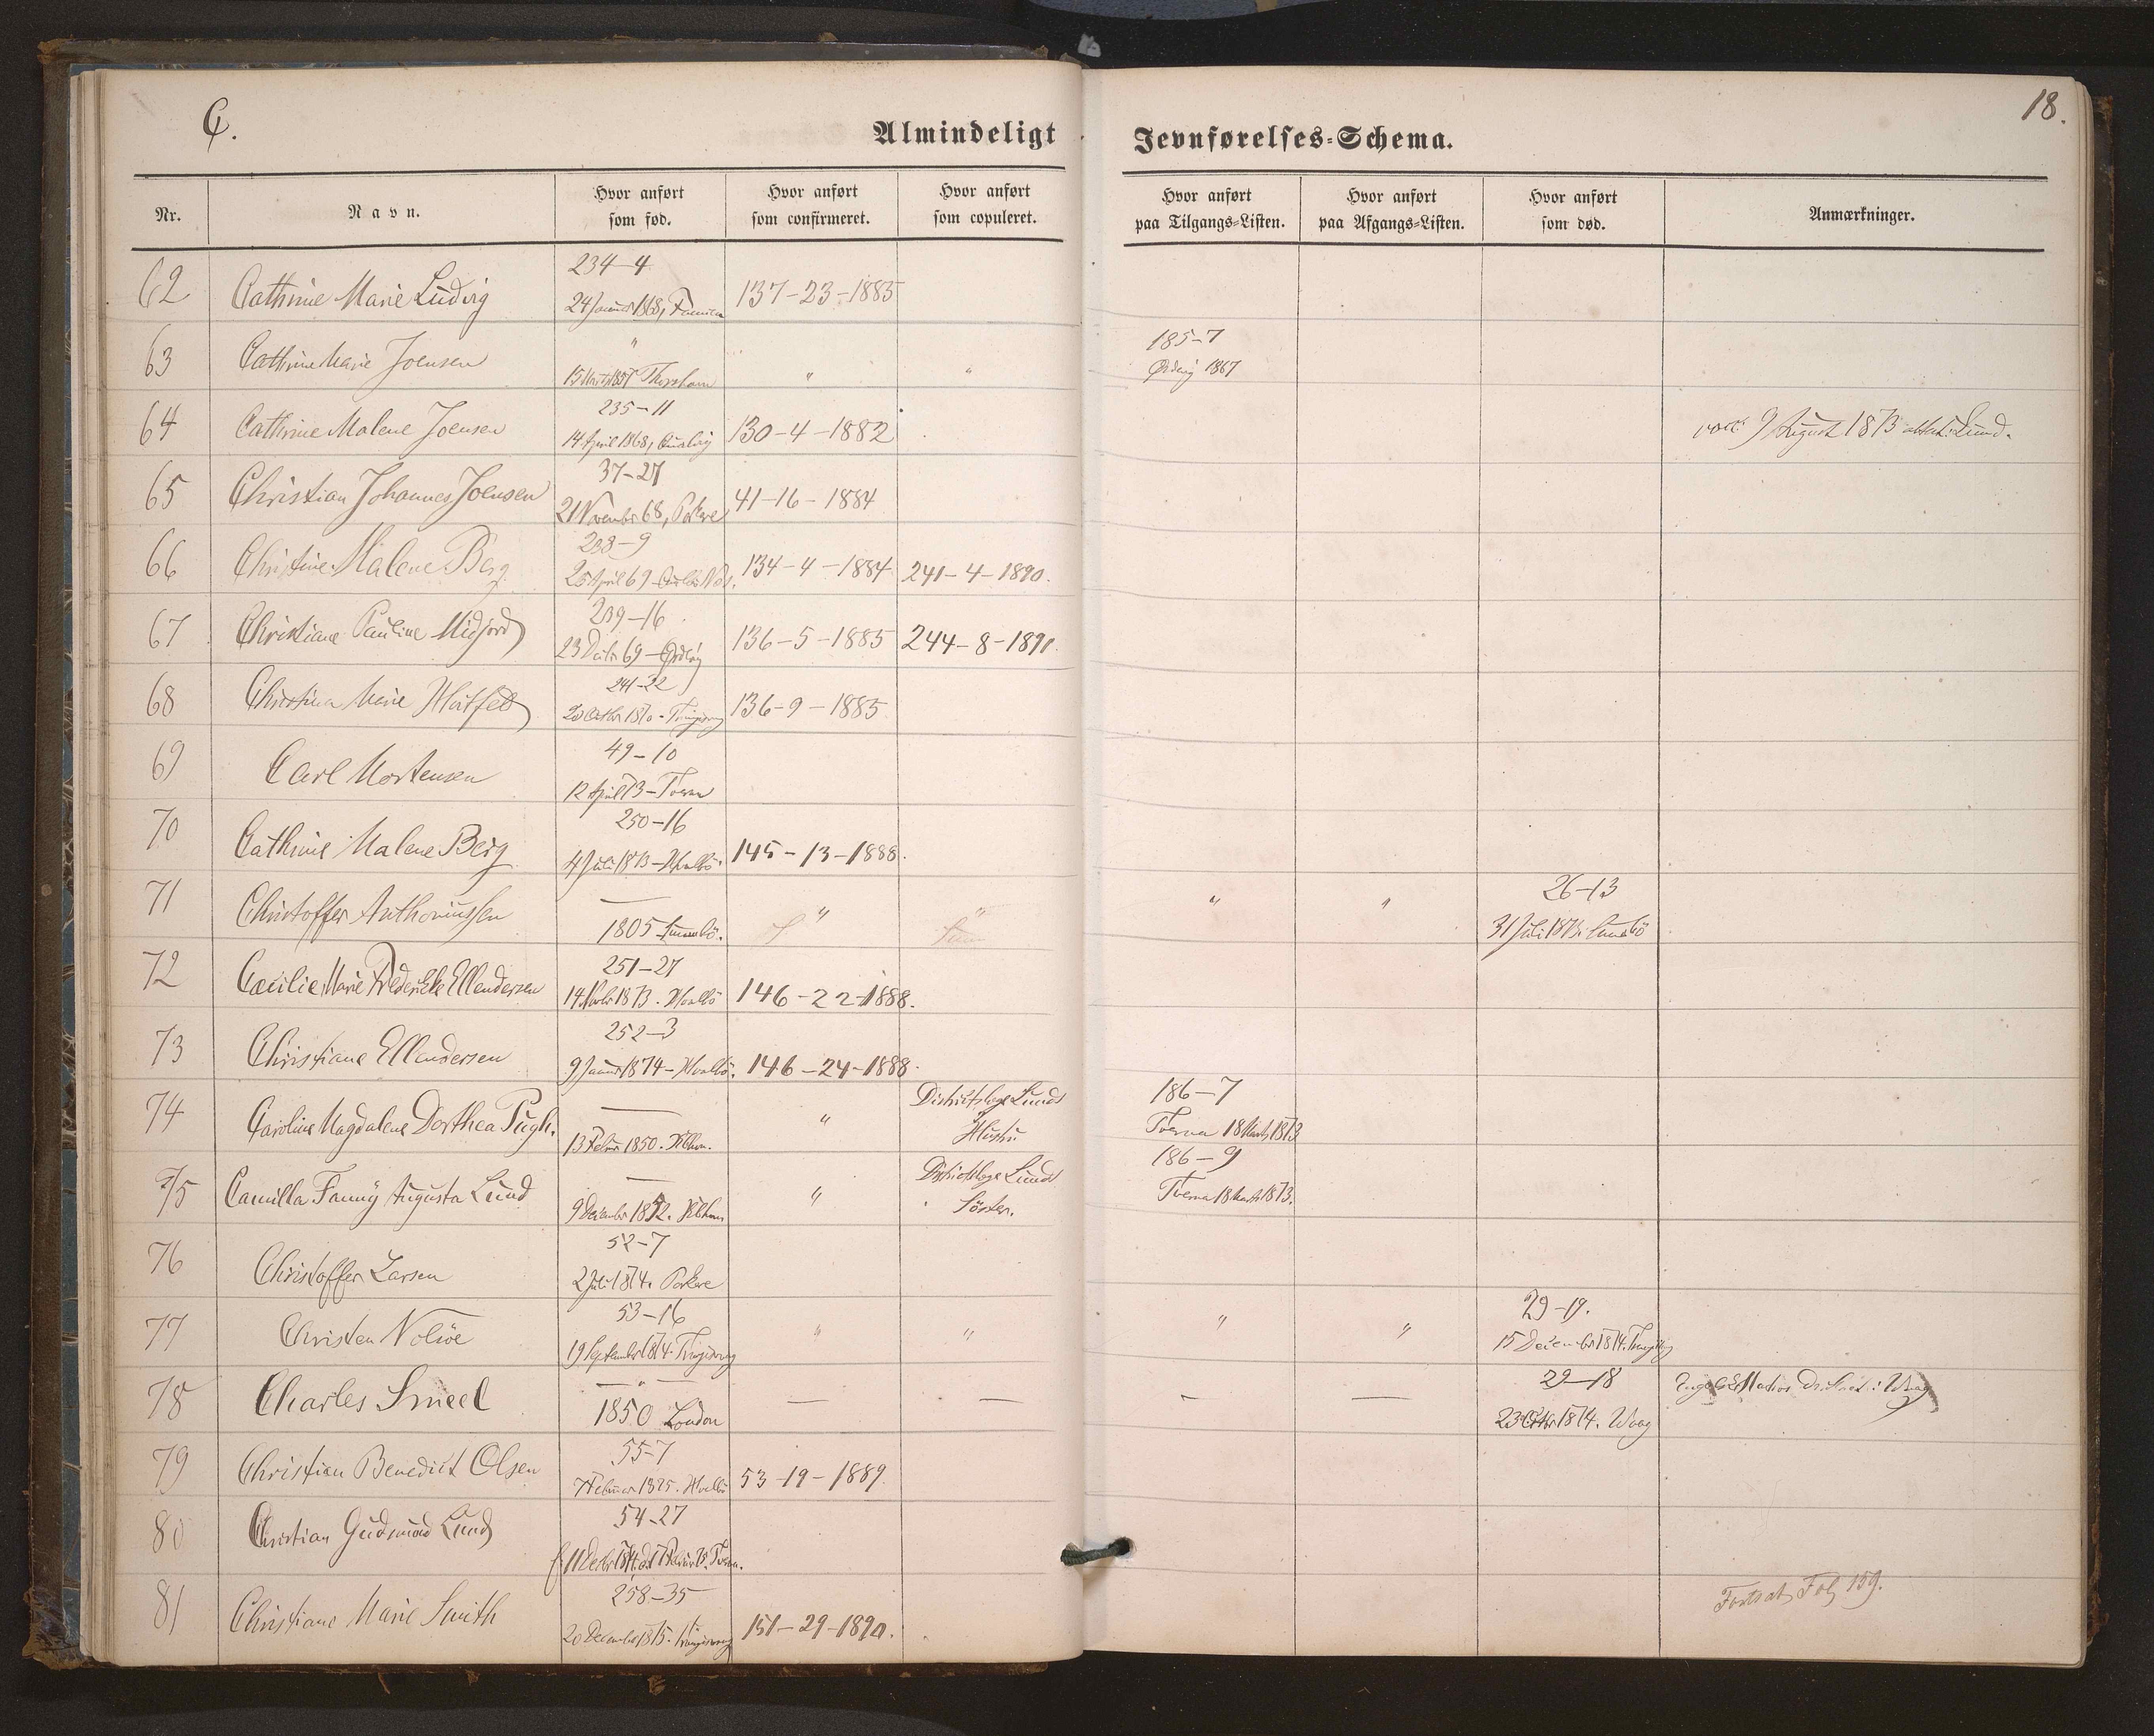 C.
18.
Almindeligt Jevnførelses-Schema.
Nr.
Navn.
Hvor anført som fød.
Hvor anført som confirmeret.
Hvor anført som copuleret.
Hvor anført paa Tilgangs-Listen.
Hvor anført paa Afgangs-Listen.
Hvor anført som død.
Anmærkninger.
234-4
62 Cathrine Marie Ludvig 24 Januar 1868, 137-23-1885
" 185-7
63 Cathrine Marie Joensen 15 Marts 1857 Thorshavn " " 1867
235-11
64 Cathrine Malene Joensen 14 April 1868, 130-4-1882 9 August 1873 Lund.
37-27
65 Christian Johannes Joensen 21 Novembr 68, Porkere 41-16-1884
238-9
66 Christine Malene Berg 25 April 69 134-4-1884 241-4-1890.
239-16
67 Christiane Pauline Midjord 23 Decbr 69 - 136-5-1885 244-8-1891.
241-22
68 Christina Marie 20 Octbr 1870 - 136-9-1885
49-10
69 Carl Mortensen 12 April 73 - Tveraa
250-16
70 Cathrine Malene Berg 4 Juli 1873 - Hvalbö. 145-13-1888.
— 26-13
71 Christoffer Anthoniussen 1805 Sumbö. " " " " 31 Juli 1873. Sumbö
251-27
72 Cæcilie Marie Frederikke Ellendersen 14 Novbr 1873. Hvalbö 146-22-1888.
252-3
73 Christiane Ellendersen 9 Januar 1874 - Hvalbö. 146-24-1888.
— Districtslæge Lunds 186-7
74 Caroline Magdalene Dorthea Pugh. 13 Februar 1850. Kbhvn. " Hustru Tveraa 18 Marts 1873
— Districtslæge Lunds 186-9
75 Camilla Fanny Augusta Lund 9 Decembr 1852. Kbhvn. " Söster. Tveraa 18 Marts 1873.
52-7
76 Christoffer Larsen 2 Juli 1874. Porkere
53-16 29-19.
77 Christen Nolsöe 19 Septembr 1874. " " " " 15 Decembr 1874.
— " — 29-18
78 Charles Smeel 1850 London — — — — 23 Octbr 1874. Waag
55-7
79 Christian Benedict Olsen 7 Februar 1875. Hvalbö 53-19-1889.
54-27
80 Christian Gudmund Lund f. 11 Decbr 1874. Tveraa.
258-35
81 Christiane Marie Smith 20 December 1875. 151-29-1890.
Fortsat Fol 159.